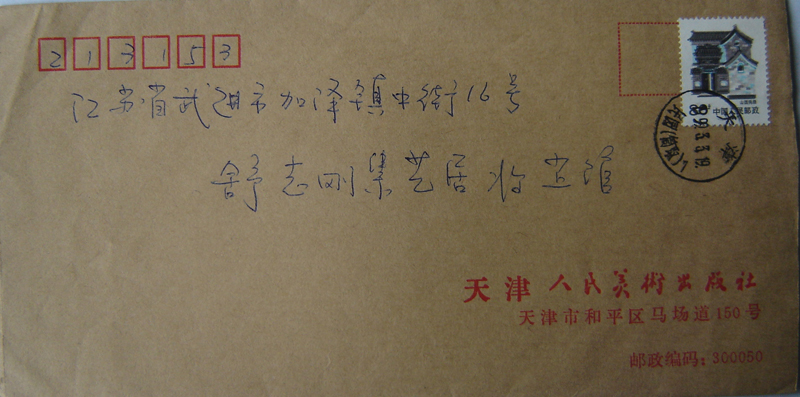 213153
江苏省武进市加泽镇中街16号
舒志刚集艺居收
馆
中国人民邮政
天津
天津人民美術出版社
天津市和平区马场道150号
邮政编码:300050